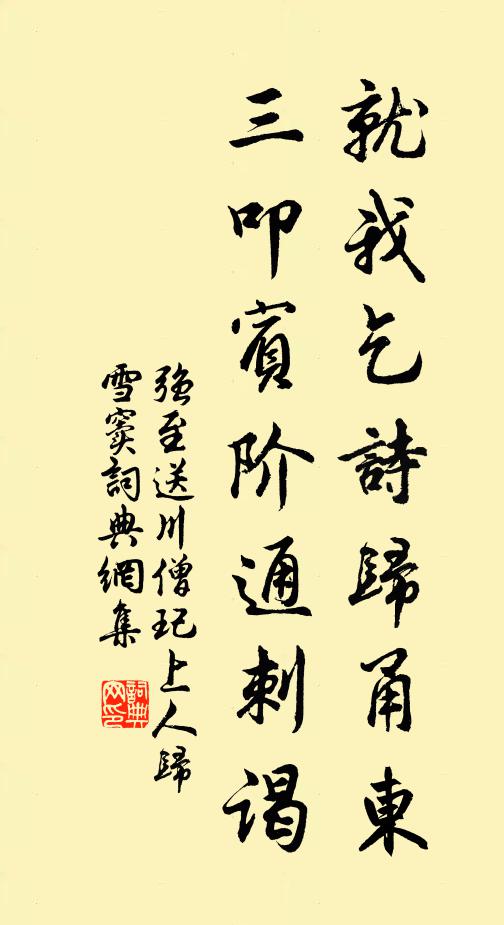 就我乞詩歸甬東
三叩賓阶通刺謁
强至送川僧玘上人歸
雪窦詞典網集
詞典网印